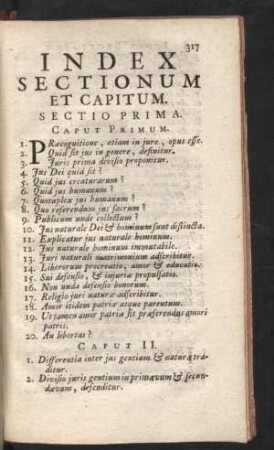 317
INDEX
SECTIONUM
ET CAPITUM.
SECTIO PRIMA.
CAPUT PRIMUM.
1. PRæcognitione, etiam in jure, opus esse.
2. Quid sit jus in genere, definitur.
3. Juris prima divisio proponitur.
4. Jus Dei quid sit?
5. Quid jus creaturarum?
6. Quid jus humanum?
7. Quotuplex jus humanum?
8. Quo referendum jus sacrum?
9. Publicum unde collectum?
10. Jus naturale Dei & hominum sunt distincta.
11. Explicatur jus naturale hominum.
12. Jus naturale hominum immutabile.
13. Juri naturali matrimonium adscribitur.
14. Liberorum procreatio, amor & educatio.
15. Sui defensio, & injuriæ propulsatio.
16. Non nuda defensio bonorum.
17. Religio juri naturæ adscribitur.
18. Amor itidem patriæ atque parentum.
19. Ut tamen amor patriæ sit præferendus amori
patris.
20. An libertas?
CAPUT II.
1. Differentia inter jus gentium & naturæ tra-
ditur.
2. Divisio juris gentium in primævum & secun-
dævum, defenditur.